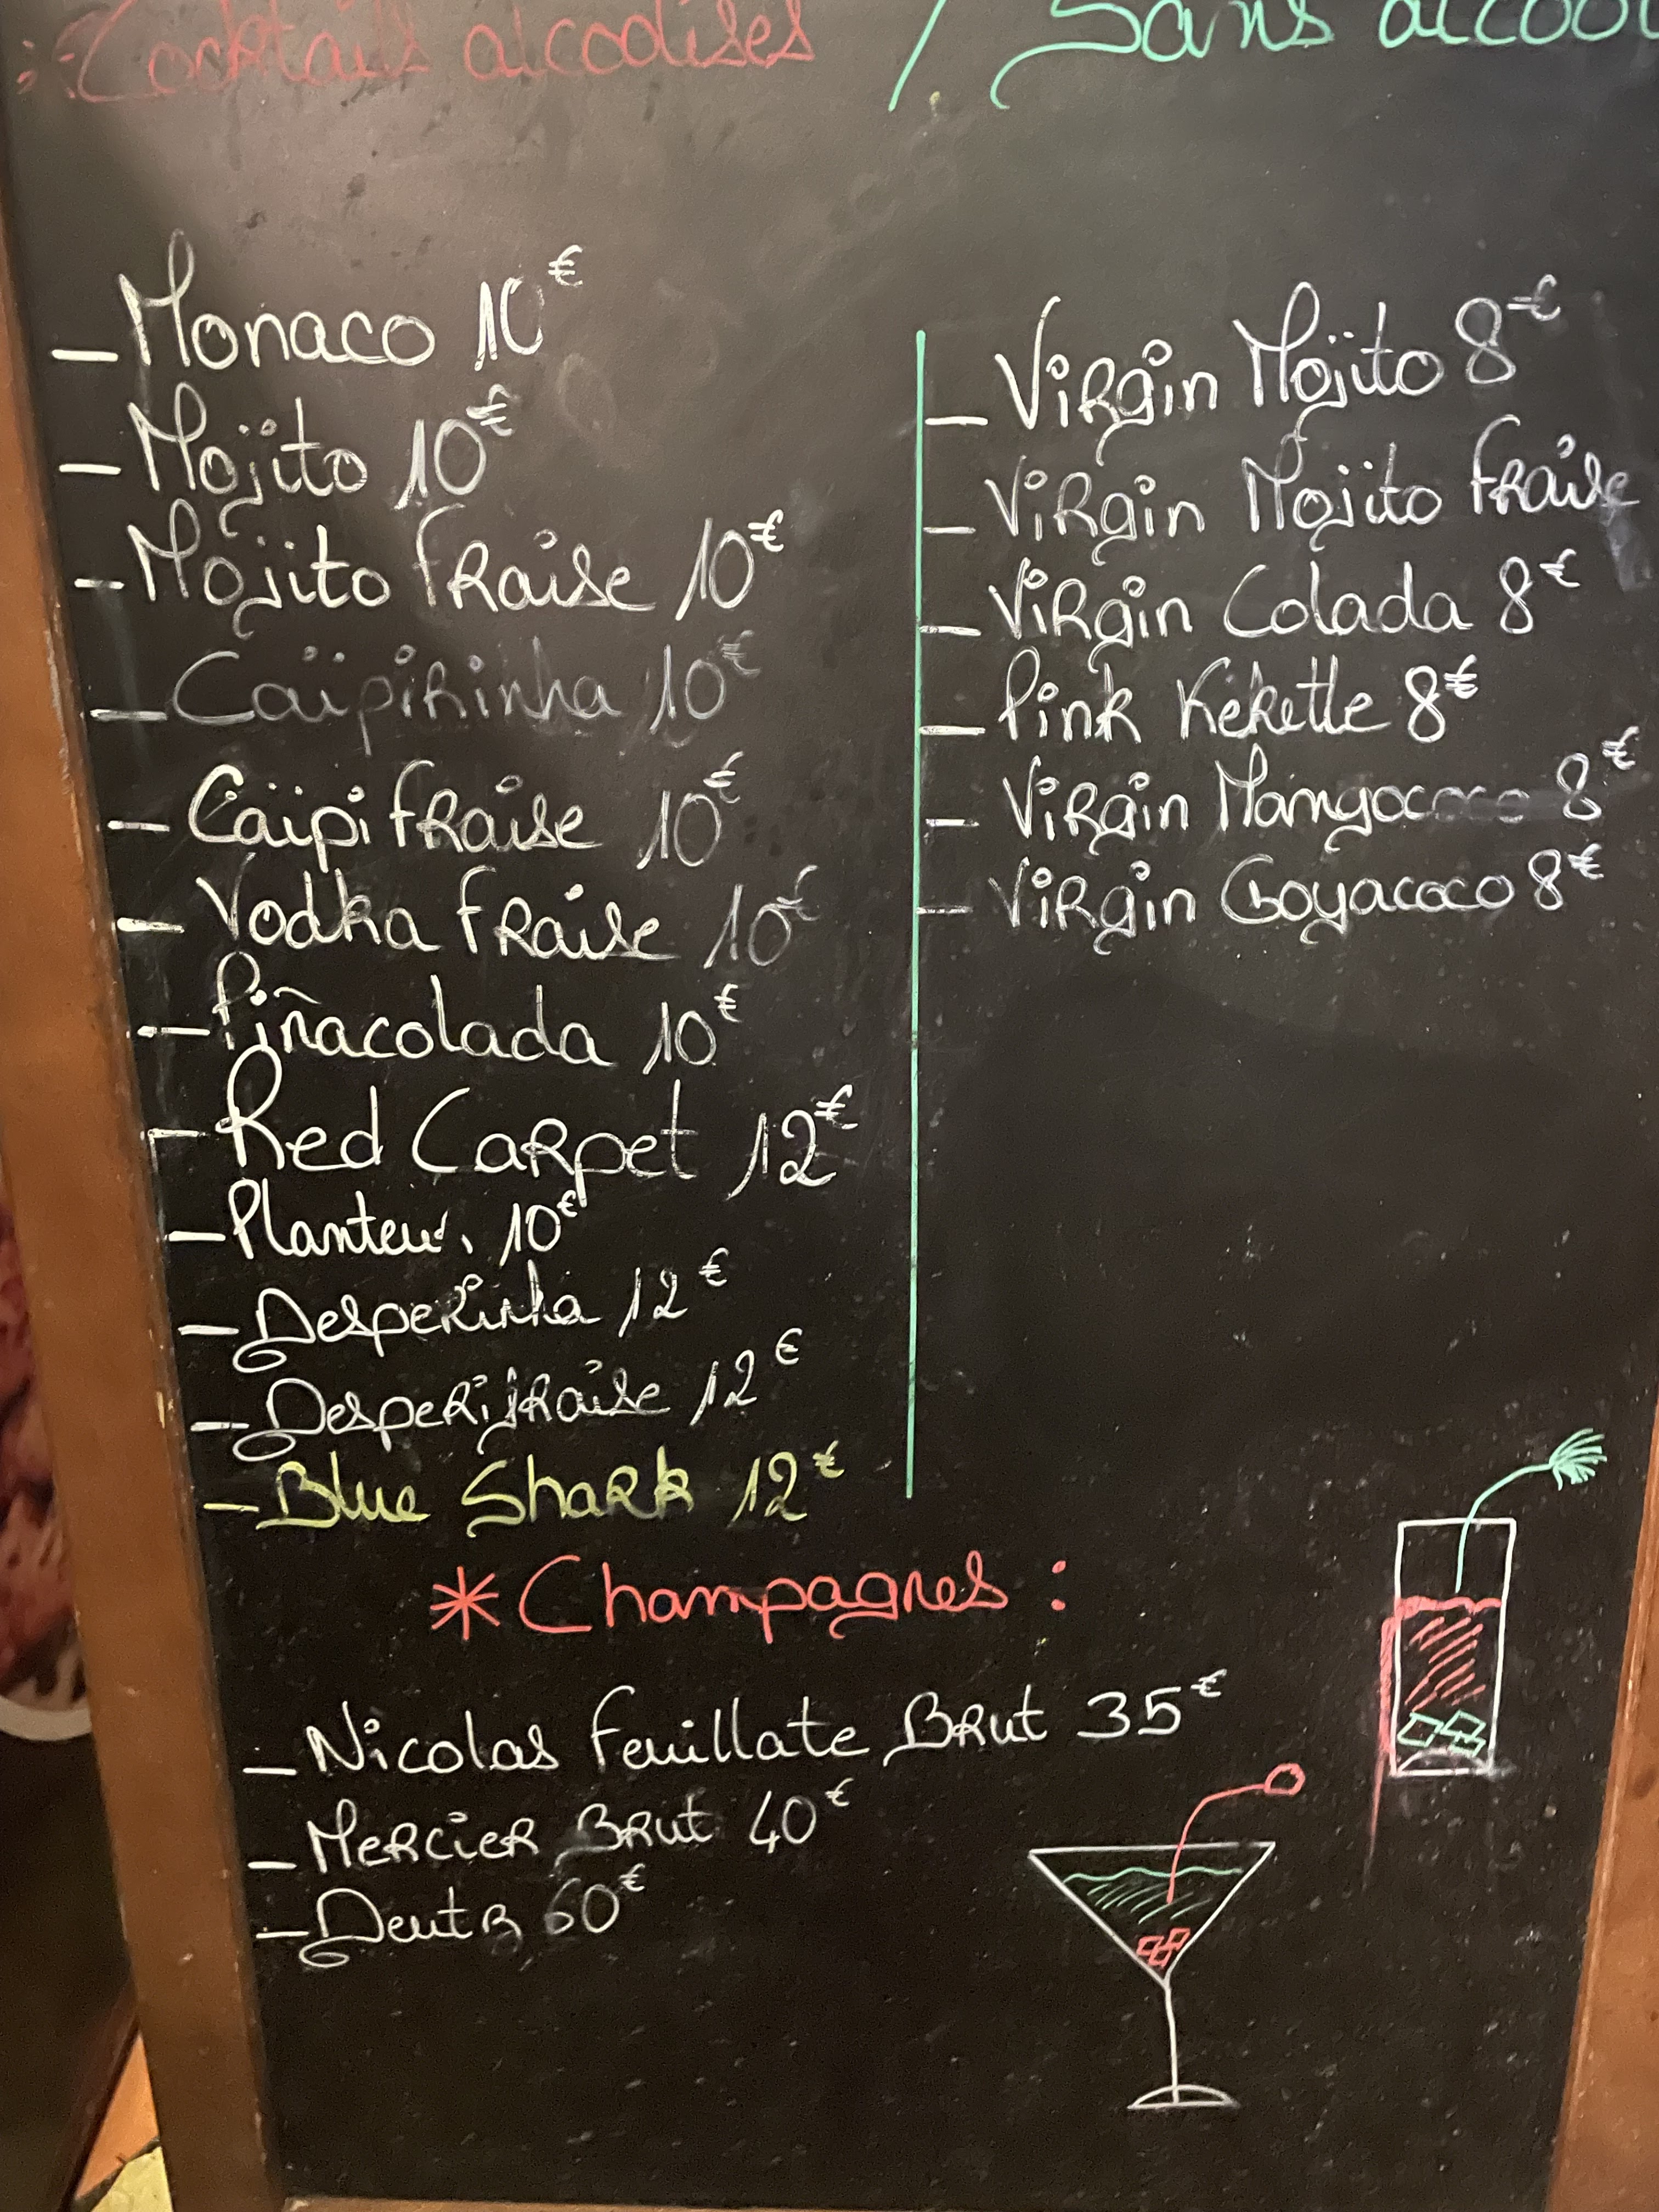 Cocktails alcoolisés / Sans alcool
- Monaco 10€
- Mojito 10€
- Mojito fraise 10€
- Caïpirinha 10€
- Caïpi fraise 10€
- Vodka fraise 10€
- Piñacolada 10€
- Red Carpet 12€
- Planteur 10€
- Desperinha 12€
- Desperifraise 12€
- Blue Shark 12€
- Virgin Mojito 8€
- Virgin Mojito fraise
- Virgin Colada 8€
- Pink Kekette 8€
- Virgin Mangococo 8€
- Virgin Goyacoco 8€
* Champagnes :
- Nicolas feuillate Brut 35€
- Mercier Brut 40€
- Deutz 60€